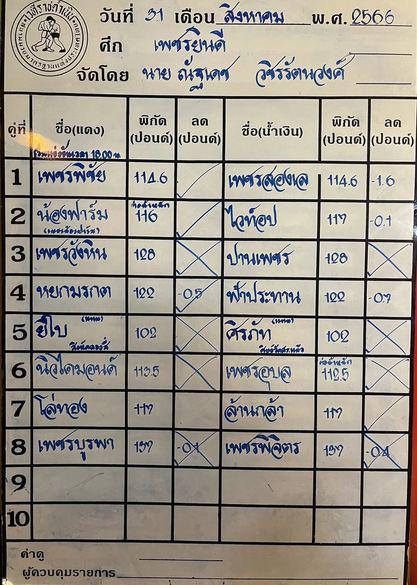 วันที่ 31 เดือน สิงหาคม พ.ศ. 2566
ศึก เพชรยินดี
จัดโดย นาย ณัฐเดช วชิรรัตนวงศ์
คู่ที่ ชื่อ(แดง) พิกัด (ปอนด์) ลด (ปอนด์) ชื่อ(น้ำเงิน) พิกัด (ปอนด์) ลด (ปอนด์)
1 เพชรพิชัย 114.6 เพชรสองเล 114.6 -1.6
2 น้องฟาร์ม 116 ไวท์อป 117 -0.1
3 เพชรวังหิน 128 ปานเพชร 128
4 หยกมรกต 122 -0.5 ฟ้าประทาน 122 -0.7
5 ยีโบ 102 ศิรภัท 102
6 นิวไดมอนด์ 113.5 เพชรอุบล 112.5
7 โล่ทอง 117 ล้านกล้า 117
8 เพชรบูรพา 137 -0.1 เพชรพิจิตร 137 -0.4
9
10
ค่าดู
ผู้ควบคุมรายการ